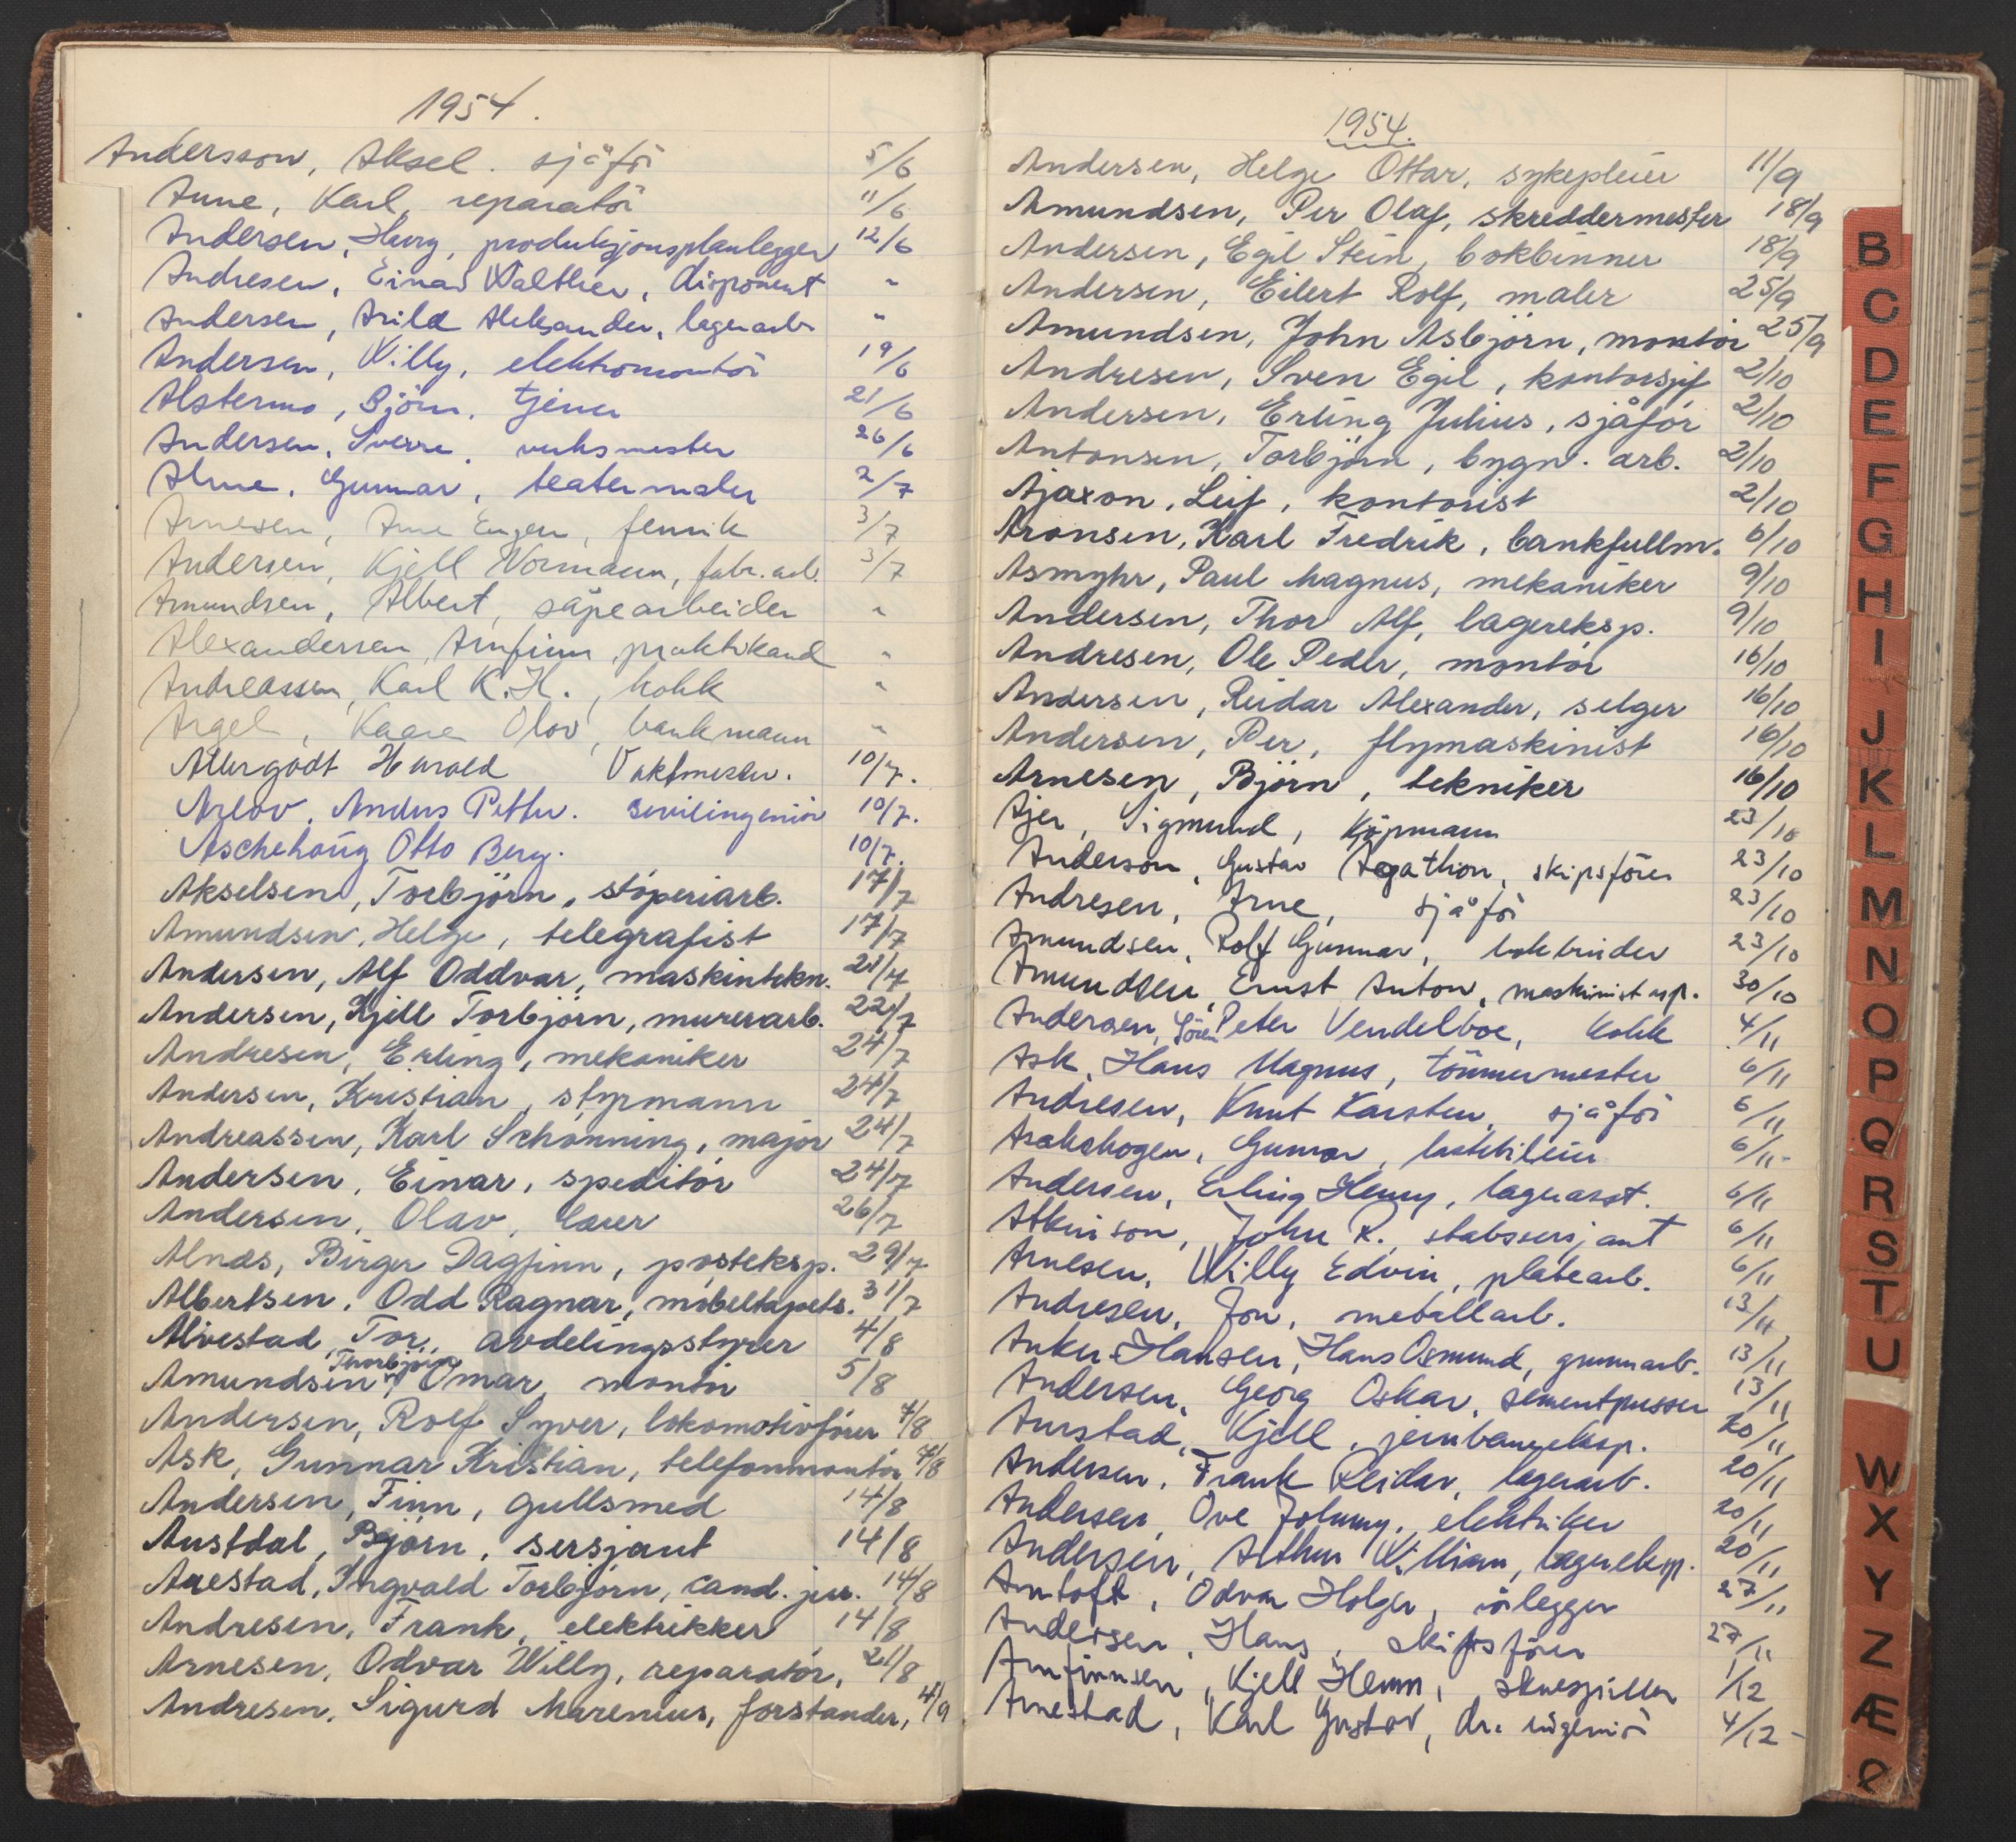 1954.
Andersson, Aksel. sjåför 5/6
Aune, Karl, reparatör 11/6
Andersen, Harry, produksjonsplanlegger 12/6
Andresen, Einar Walther, disponent "
Andersen, Arild Aleksander, lagerarb. "
Andersen, Willy, elektromontör 19/6
Alstermo, Björn, tjener 21/6
Andersen, Sverre, verksmester 26/6
Alme, Gunnar, teatermaler 2/7
Arnesen, Arne Eugen, fenrik 3/7
Andersen, Kjell Normann, fabr. arb. 3/7
Amundsen, Albert, såpearbeider "
Alexandersen, Arnfinn, praktikand "
Andreassen, Karl K. H., kokk "
Argel, Kaare Olov, bankmann "
Allergodt Harald Vaktmester. 10/7.
Arlov, Anders Petter. sivilingeniör 10/7.
Aschehoug Otto Berg. 10/7.
Akselsen, Torbjörn, stöperiarb. 17/7
Amundsen, Helge, telegrafist 17/7
Andersen, Alf Oddvar, maskintekn. 21/7
Andersen, Kjell Torbjörn, murerarb. 22/7
Andresen, Erling, mekaniker 24/7
Andersen, Kristian, styrmann 24/7
Andreassen, Karl Schönning, major 24/7
Andersen, Einar, speditör 24/7
Andersen, Olav, lærer 26/7
Alnæs, Birger Dagfinn, posteksp. 29/7
Albertsen, Odd Ragnar, möbeltapets. 31/7
Alvestad, Tor, avdelingsstyrer 4/8
Amundsen, Thorbjörn Omar, montör 5/8
Andersen, Rolf Syver, lokomotivförer 7/8
Ask, Gunnar Kristian, telefonmontör 7/8
Andersen, Finn, gullsmed 14/8
Austdal, Björn, sersjant 14/8
Aarestad, Ingvald Torbjörn, cand. jur. 14/8
Andresen, Frank, elektrikker 14/8
Arnesen, Odvar Willy, reparatör, 21/8
Andresen, Sigurd Marenius, forstander, 4/9
1954.
Andersen, Helge Ottar, sykepleier 11/9
Amundsen, Per Olaf, skreddermester 18/9
Andersen, Egil Stein, bokbinner 18/9
Andersen, Eilert Rolf, maler 25/9
Amundsen, John Asbjörn, montör 25/9
Andresen, Sven Egil, kontorsjef 2/10
Andersen, Erling Julius, sjåför 2/10
Antonsen, Torbjörn, bygn. arb. 2/10
Ajaxon, Leif, kontorist 2/10
Aronsen, Karl Fredrik, bankfullm. 6/10
Asmyhr, Paul Magnus, mekaniker 9/10
Andersen, Thor Alf, lagereksp. 9/10
Andresen, Ole Peder, montör 16/10
Andersen, Reidar Alexander, selger 16/10
Andersen, Per, flymaskinist 16/10
Arnesen, Björn, tekniker 16/10
Ajer, Sigmund, Kjöpmann 23/10
Anderson, Gustav Agathon, skipsförer 23/10
Andresen, Arne, sjåför 23/10
Amundsen, Rolf Gunnar, bokbinder 23/10
Amundsen, Ernst Anton, maskinist asp. 30/10
Andersen, Sören Peter Vendelboe, kokk 4/11
Ask, Hans Magnus, tömmermester 6/11
Andresen, Knut Karsten, sjåför 6/11
Gunnar, lastebileier 6/11
Andersen, Erling Henry, lagerasst. 6/11
Atkinson, John R., stabssersjant 6/11
Arnesen, Willy Edvin, platearb. 6/11
Andresen, Jon, metallarb. 13/11
Anker-Hansen, Hans Osmund, grunnarb. 13/11
Andersen, Georg Oskar, sementpusser 13/11
Aurstad, Kjell, jernbaneeksp. 20/11
Andersen, Frank Reidar, lagerarb. 20/11
Andersen, Ove Johnny, elektriker 20/11
Andersen, Arthur William, lagereksp. 20/11
Amtoft, Odvar Holger, rörlegger 27/11
Andersen, Hans, skipsförer 27/11
Arnfinnsen, Kjell Henm, skuespiller 1/12
Arnestad, Karl Gustav, dr. ingeniör 4/12
B
C
D
E
F
G
H
I
J
K
L
M
N
O
P
Q
R
S
T
U
W
X
Y
Z
Æ